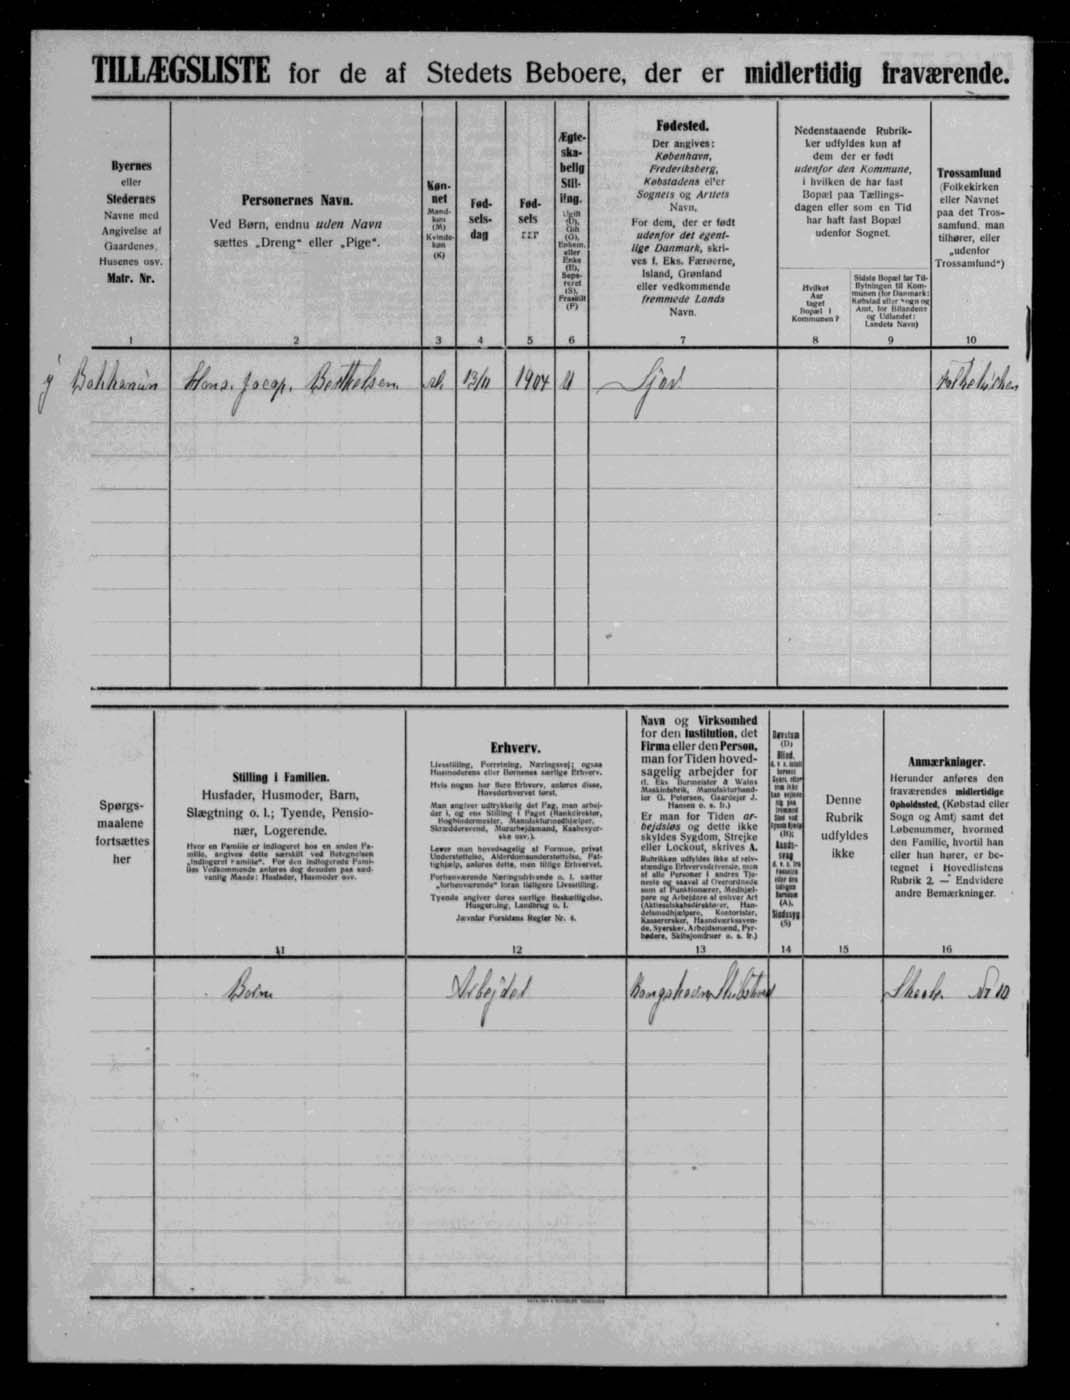 TILLÆGSLISTE for de af Stedets Beboere, der er midlertidig fraværende.
Byernes
eller
Stedernes
Navne med
Angivelse af
Gaardenes,
Husenes osv.
Matr. Nr.
1
Personernes Navn.
Ved Børn, endnu uden Navn
sættes „Dreng“ eller „Pige“.
2
Køn-
net
Mand-
køn
(M)
Kvinde-
køn
(K)
3
Fød-
sels-
dag
4
Fød-
sels
5
Ægte-
ska-
belig
Stil-
ling.
Ugift
(U),
Gift
(G),
Enkem.
eller
Enke
(E),
Sepa-
reret
(S),
Fraskilt
(F)
6
Fødested.
Der angives:
København,
Frederiksberg,
Købstadens eller
Sognets og Amtets
Navn,
For dem, der er født
udenfor det egent-
lige Danmark, skri-
ves f. Eks. Færøerne,
Island, Grønland
eller vedkommende
fremmede Lands
Navn.
7
Nedenstaaende Rubrik-
ker udfyldes kun af
dem der er født
udenfor den Kommune,
i hvilken de har fast
Bopæl paa Tællings-
dagen eller som en Tid
har haft fast Bopæl
udenfor Sognet.
Hvilket
Aar
taget
Bopæl i
Kommunen?
8
Sidste Bopæl før Til-
flytningen til Kom-
munen (for Danmark:
Købstad eller Sogn og
Amt, for Bilandene
og Udlandet:
Landets Navn)
9
Trossamfund
(Folkekirken
eller Navnet
paa det Tros-
samfund, man
tilhører, eller
„udenfor
Trossamfund“)
10
Hans. Jacop. Berthelsen. 13/11 1904 U
Spørgs-
maalene
fortsættes
her
Stilling i Familien.
Husfader, Husmoder, Barn,
Slægtning o. l.; Tyende, Pensio-
nær, Logerende.
Hvor en Familie er indlogeret hos en anden Fa-
milie, angives dette særskilt ved Betegnelsen
„Indlogeret Familie“. For den indlogerede Fami-
lies Vedkommende anføres dog desuden paa sæd-
vanlig Maade: Husfader, Husmoder osv.
11
Erhverv.
Livsstilling, Forretning, Næringsvej; ogsaa
Husmoderens eller Børnenes særlige Erhverv.
Hvis nogen har flere Erhverv, anføres disse,
Hovederhvervet først.
Man angiver udtrykkelig det Fag, man arbej-
der i, og ens Stilling i Faget (Bankdirektør,
Bogbindermester, Manufakturmedhjælper,
Skræddersvend, Murarbejdsmand, Kaabesyer-
ske osv.).
Lever man hovedsagelig af Formue, privat
Understøttelse, Alderdomsunderstøttelse, Fat-
tighjælp, anføres dette, men tillige Erhvervet.
Forhenværende Næringsdrivende o. l. sætter
„forhenværende“ foran tidligere Livsstilling.
Tyende angiver deres særlige Beskæftigelse,
Husgerning, Landbrug o. l.
Jævnfør Forsidens Regler Nr. 6.
12
Navn og Virksomhed
for den Institution, det
Firma eller den Person,
man for Tiden hoved-
sagelig arbejder for
(f. Eks. Burmeister & Wains
Maskinfabrik, Manufakturhand-
ler G. Petersen, Gaardejer J.
Hansen o. s. fr.)
Er man for Tiden ar-
bejdsløs og dette ikke
skyldes Sygdom, Strejke
eller Lockout, skrives A.
Rubrikken udfyldes ikke af selv-
stændige Erhvervsdrivende, men
af alle Personer i andres Tje-
neste og saavel af Overordnede
som af Funktionærer, Medhjæl-
pere og Arbejdere af enhver Art
(Aktieselskabsdirektører, Han-
delsmedhjælpere, Kontorister,
Kassererske, Haandværkssven-
de, Syersker, Arbejdsmænd, Fyr-
bødere, Skibsjomfruer o. s. fr.)
13
Døvstum
(D)
Blind,
14
Denne
Rubrik
udfyldes
ikke
15
Anmærkninger.
Herunder anføres den
fraværendes midlertidige
Opholdssted, (Købstad eller
Sogn og Amt) samt det
Løbenummer, hvormed
den Familie, hvortil han
eller hun hører, er be-
tegnet i Hovedlistens
Rubrik 2. — Endvidere
andre Bemærkninger.
16
Nr 10